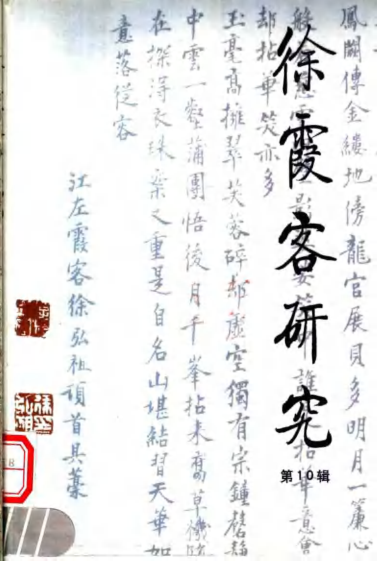 徐霞客研究
第10辑
鳳闕傳金縷地傍龍宮展貝多明月一簾心
却拈華笑亦多
玉毫高擁翠芙蓉碎却虛空獨有宗鐘磬
中雲一壑蒲團悟後月千峯拈來腐草機
在探得衣珠案又重是自名山堪結習天華如
意落從容
江左霞客徐弘祖頓首具藁